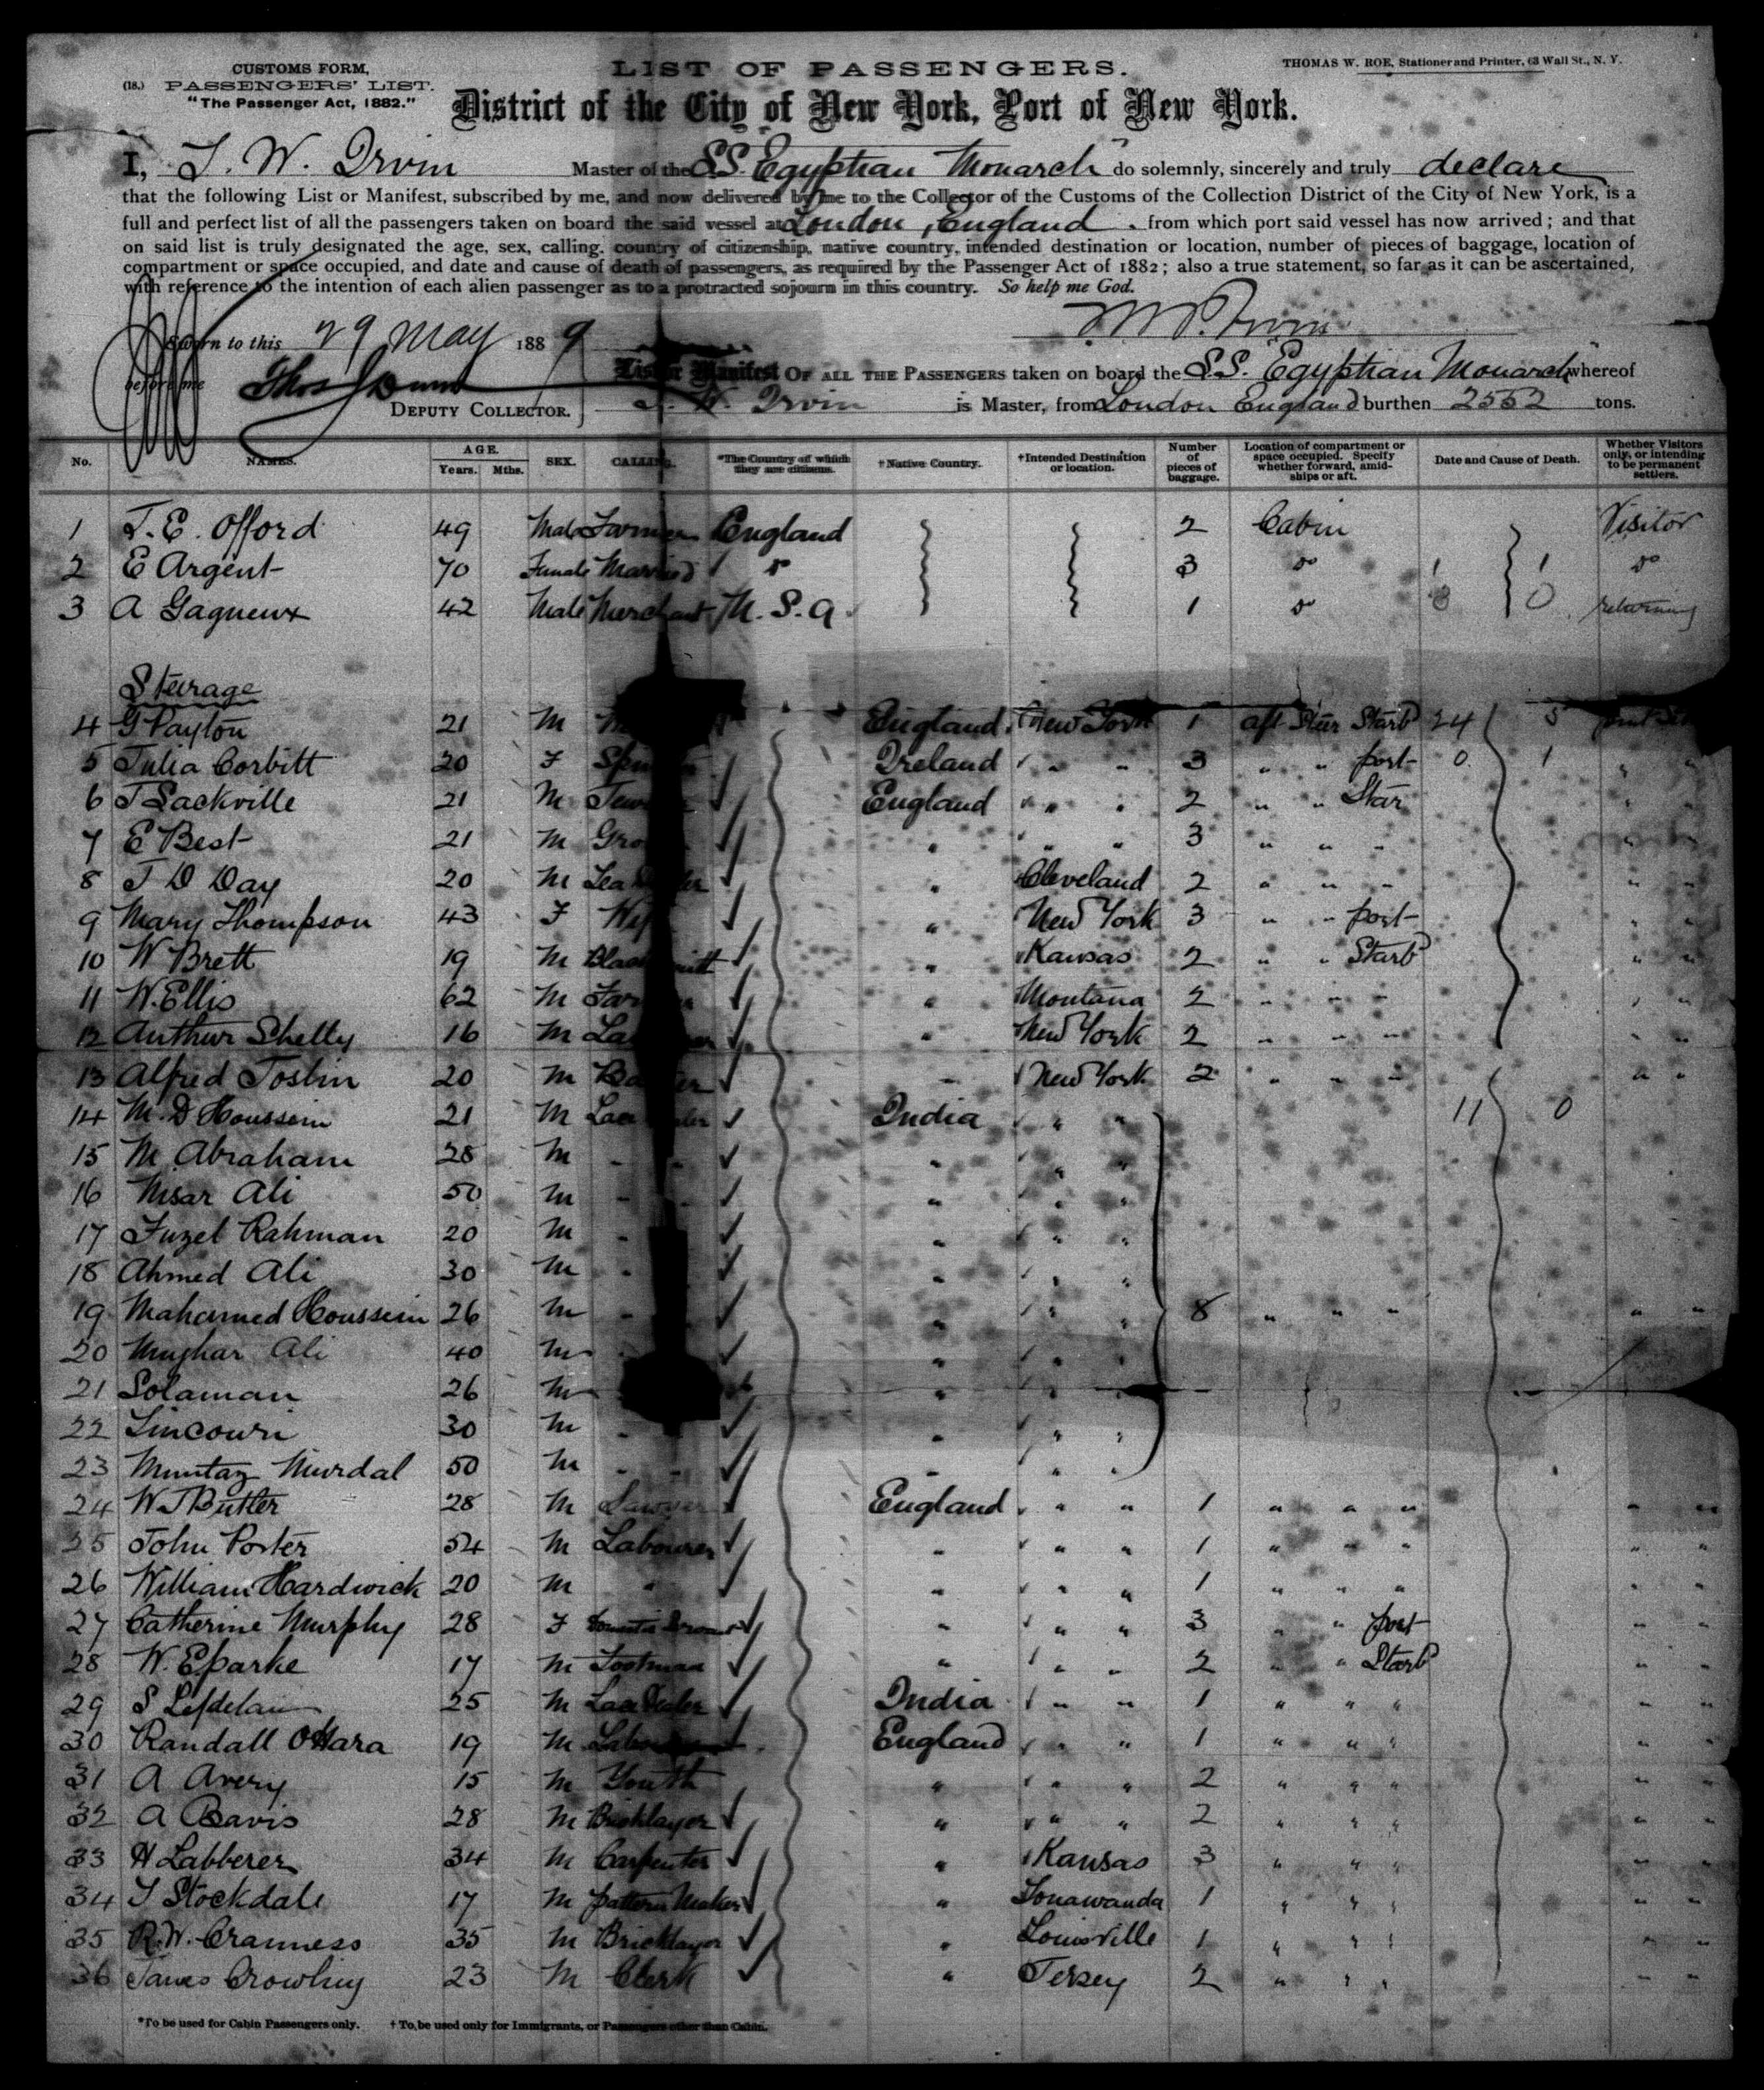 CUSTOMS FORM,
(18.) PASSENGERS' LIST.
"The Passenger Act, 1882."
LIST OF PASSENGERS.
THOMAS W. ROE, Stationer and Printer, 63 Wall St., N. Y.
District of the City of New York, Port of New York.
I, T. W. Irvin Master of the S.S. "Egyptian Monarch" do solemnly, sincerely and truly declare
that the following List or Manifest, subscribed by me, and now delivered by me to the Collector of the Customs of the Collection District of the City of New York, is a
full and perfect list of all the passengers taken on board the said vessel at London, England. from which port said vessel has now arrived; and that
on said list is truly designated the age, sex, calling, country of citizenship, native country, intended destination or location, number of pieces of baggage, location of
compartment or space occupied, and date and cause of death of passengers, as required by the Passenger Act of 1882; also a true statement, so far as it can be ascertained,
with reference to the intention of each alien passenger as to a protracted sojourn in this country. So help me God.
Sworn to this 29 May 1889
before me
DEPUTY COLLECTOR.
List or Manifest OF ALL THE PASSENGERS taken on board the S.S. "Egyptian Monarch" whereof
W. Irvin is Master, from London England burthen 2552 tons.
No. NAMES. AGE. Years. Mths. SEX. CALLING. *The Country of which they are citizens. †Native Country. †Intended Destination or location. Number of pieces of baggage. Location of compartment or space occupied. Specify whether forward, amidships or aft. Date and Cause of Death. Whether Visitors only, or intending to be permanent settlers.
1 T. E. Offord 49 Male Farmer England 2 Cabin Visitor
2 E Argent 70 Female Married do 3 do 1 1 do
3 A Gagneux 42 Male Merchant U. S. A 1 do 3 0 returning
Steerage
4 G Payton 21 M England New York 1 aft Steer Starb 24 5
5 Julia Corbitt 20 F Ireland " " 3 " " port 0 1 " "
6 J Sackville 21 M England " " 2 " " Star " "
7 E Best 21 M " " " 3 " " " " "
8 J D Day 20 M " Cleveland 2 " " " " "
9 Mary Thompson 43 F Wife " New York 3 " " port " "
10 W Brett 19 M Blacksmith " Kansas 2 " " Starb " "
11 W. Ellis 62 M " Montana 2 " " " " "
12 Arthur Shelly 16 M " New York 2 " " " " "
13 Alfred Joslin 20 M " New York 2 " " " " "
14 M. D Houssein 21 M India " " 11 0
15 M. Abraham 28 M " " " "
16 Nisar Ali 50 M " " " "
17 Fuzel Rahman 20 M " " " "
18 Ahmed Ali 30 M " " " "
19 Mahamed Houssein 26 M " " " " 8 " " " " "
20 Mughar Ali 40 M " " " "
21 Solaman 26 M " " "
22 Lincouri 30 M " " " "
23 Muntaz Murdal 50 M " " " "
24 W J Butler 28 M Sawyer England " " 1 " " " " "
25 John Porter 54 M Labourer " " " 1 " " " " "
26 William Hardwick 20 M " " " " 1 " " " " "
27 Catherine Murphy 28 F Domestic Servant " " " 3 " " port " "
28 W. Eparke 17 M Footman " " " 2 " " Starb " "
29 S 25 M Lace Dealer India " " 1 " " " " "
30 Randall O'Hara 19 M Labourer England " " 1 " " " " "
31 A Avery 15 M Youth " " " 2 " " " " "
32 A Bavis 28 M Bricklayer " " " 2 " " " " "
33 H Labberer 34 M Carpenter " Kansas 3 " " " " "
34 T Stockdale 17 M pattern Maker " Tonawanda 1 " " " " "
35 R. W. Cranness 35 M Bricklayer " Louisville 1 " " " " "
36 James Crowhuy 23 M Clerk " Jersey 2 " " " " "
*To be used for Cabin Passengers only. †To be used only for Immigrants, or Passengers other than Cabin.